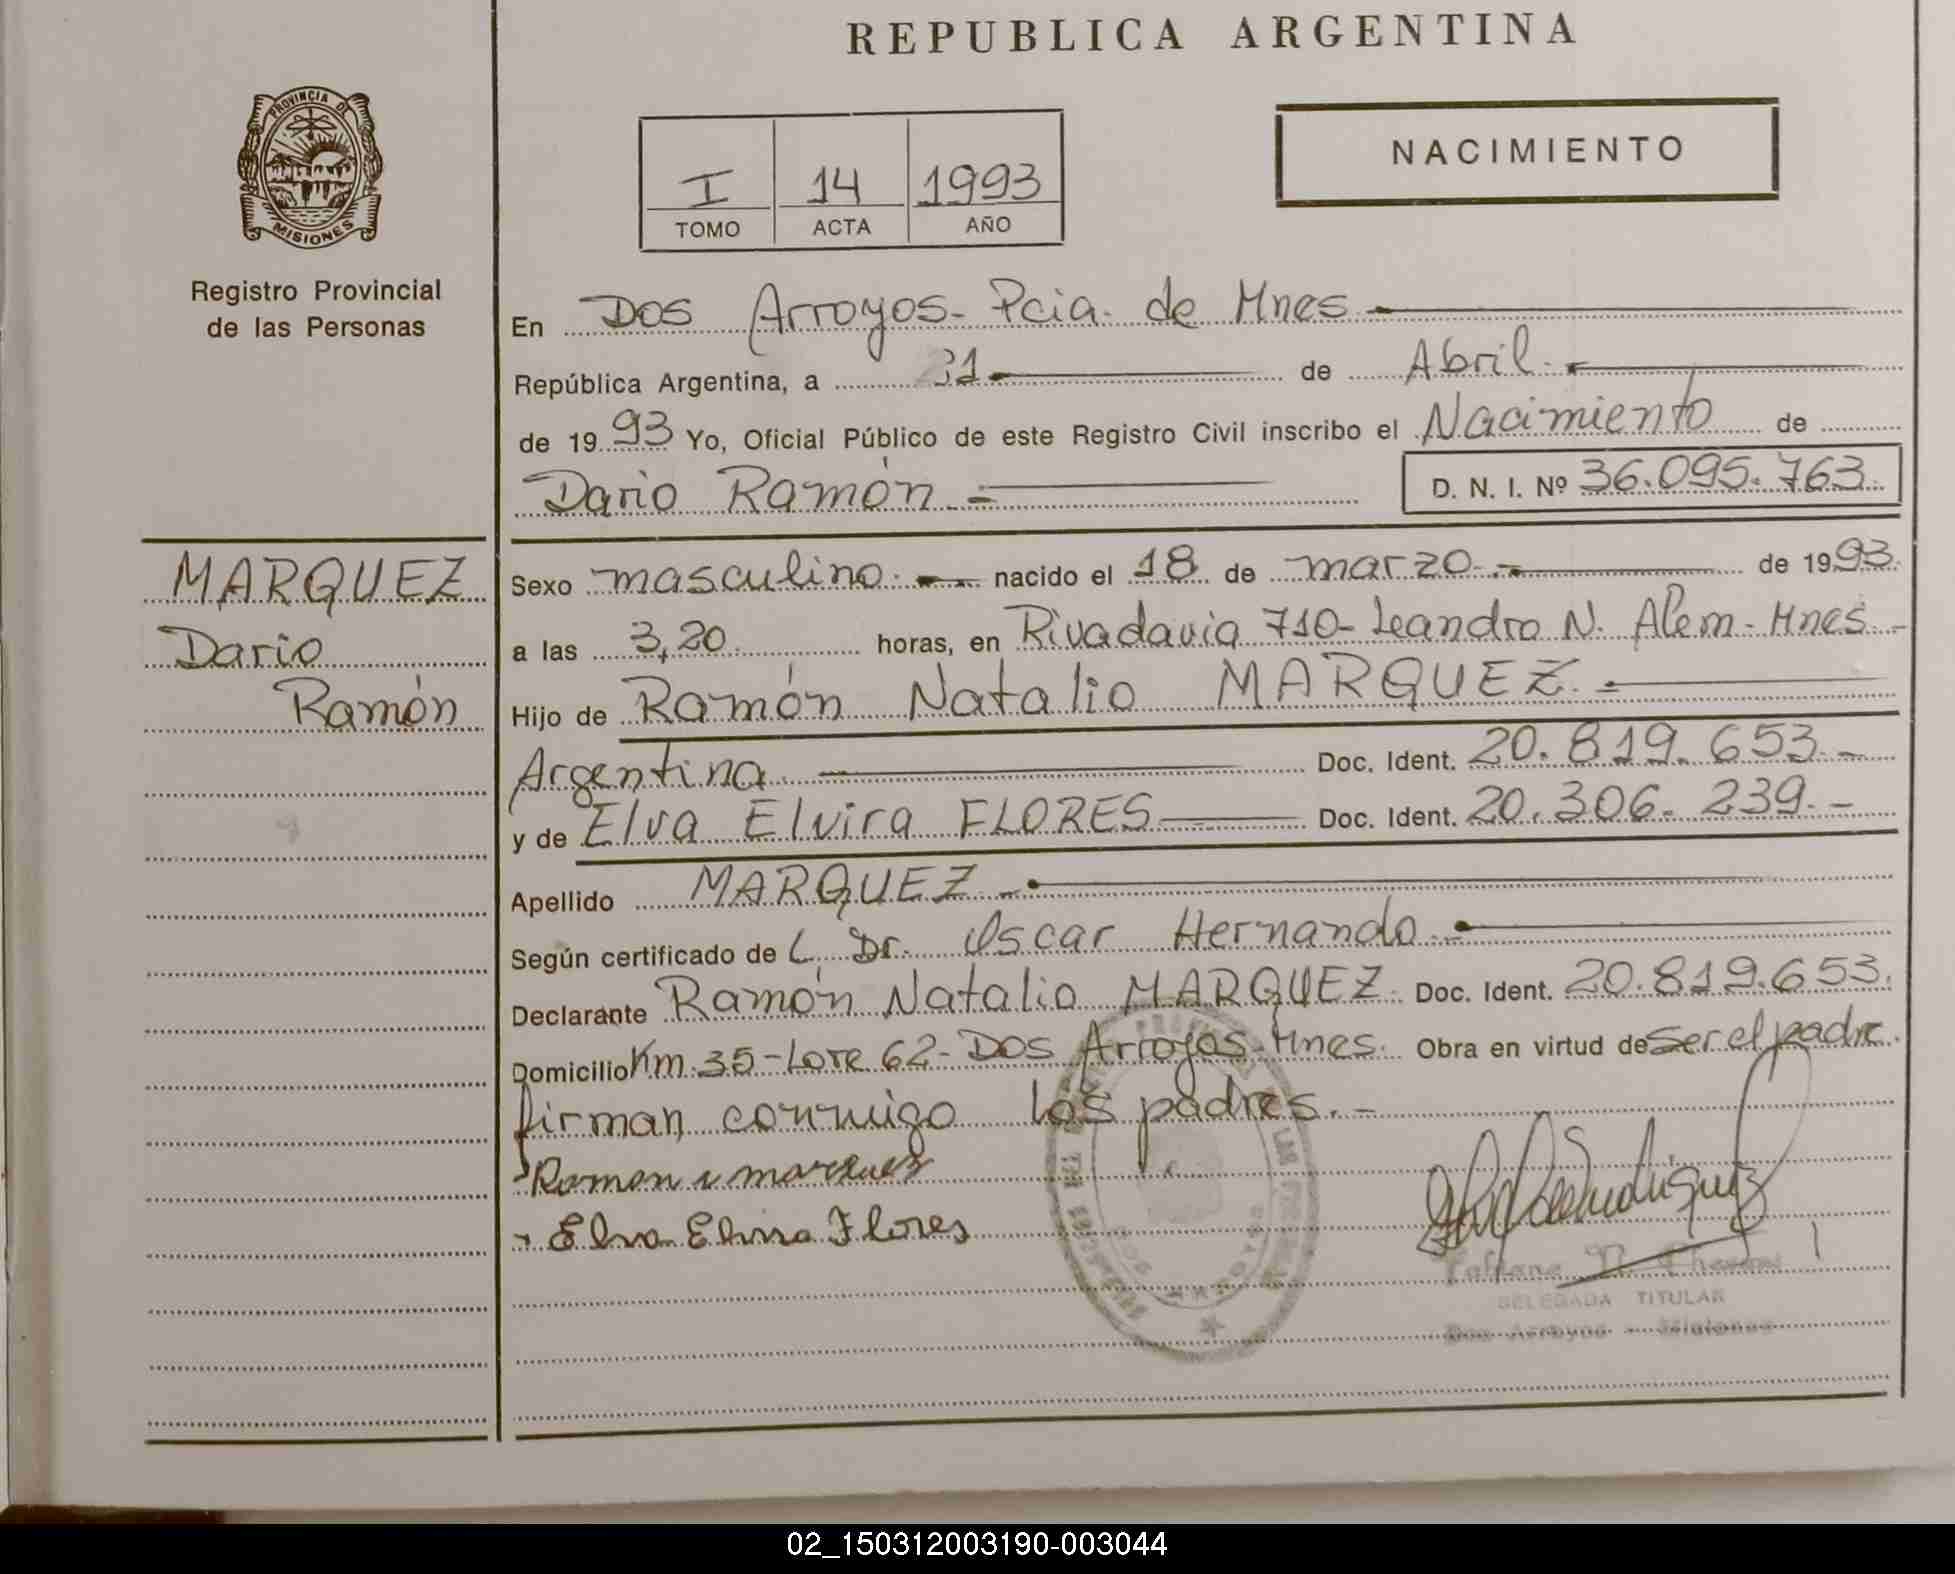 REPUBLICA ARGENTINA
PROVINCIA D
MISIONES
Registro Provincial
de las Personas
I 14 1993
TOMO ACTA AÑO
NACIMIENTO
En Dos Arroyos- Pcia. de Mnes
República Argentina, a 21 de Abril.
de 1993 Yo, Oficial Público de este Registro Civil inscribo el Nacimiento de
Dario Ramón.- D. N. I. Nº 36.095.763.
MARQUEZ
Dario
Ramón
Sexo masculino.- nacido el 18 de marzo.- de 1993.
a las 3,20 horas, en Rivadavia 710- Leandro N. Alem- Mnes.-
Hijo de Ramón Natalio MARQUEZ.-
Argentina. Doc. Ident. 20.819.653.-
y de Elva Elvira FLORES Doc. Ident. 20.306.239.-
Apellido MARQUEZ.-
Según certificado de L. Dr. Oscar Hernando.-
Declarante Ramón Natalio MARQUEZ. Doc. Ident. 20.819.653.
Domicilio Km.35-Lote 62- Dos Arroyos-Mnes. Obra en virtud de ser el padre.
firman conmigo los padres.-
Ramon n marquez
Elva Elvira Flores
DELEGADA TITULAR
Dos Arroyos - Misiones
02_150312003190-003044